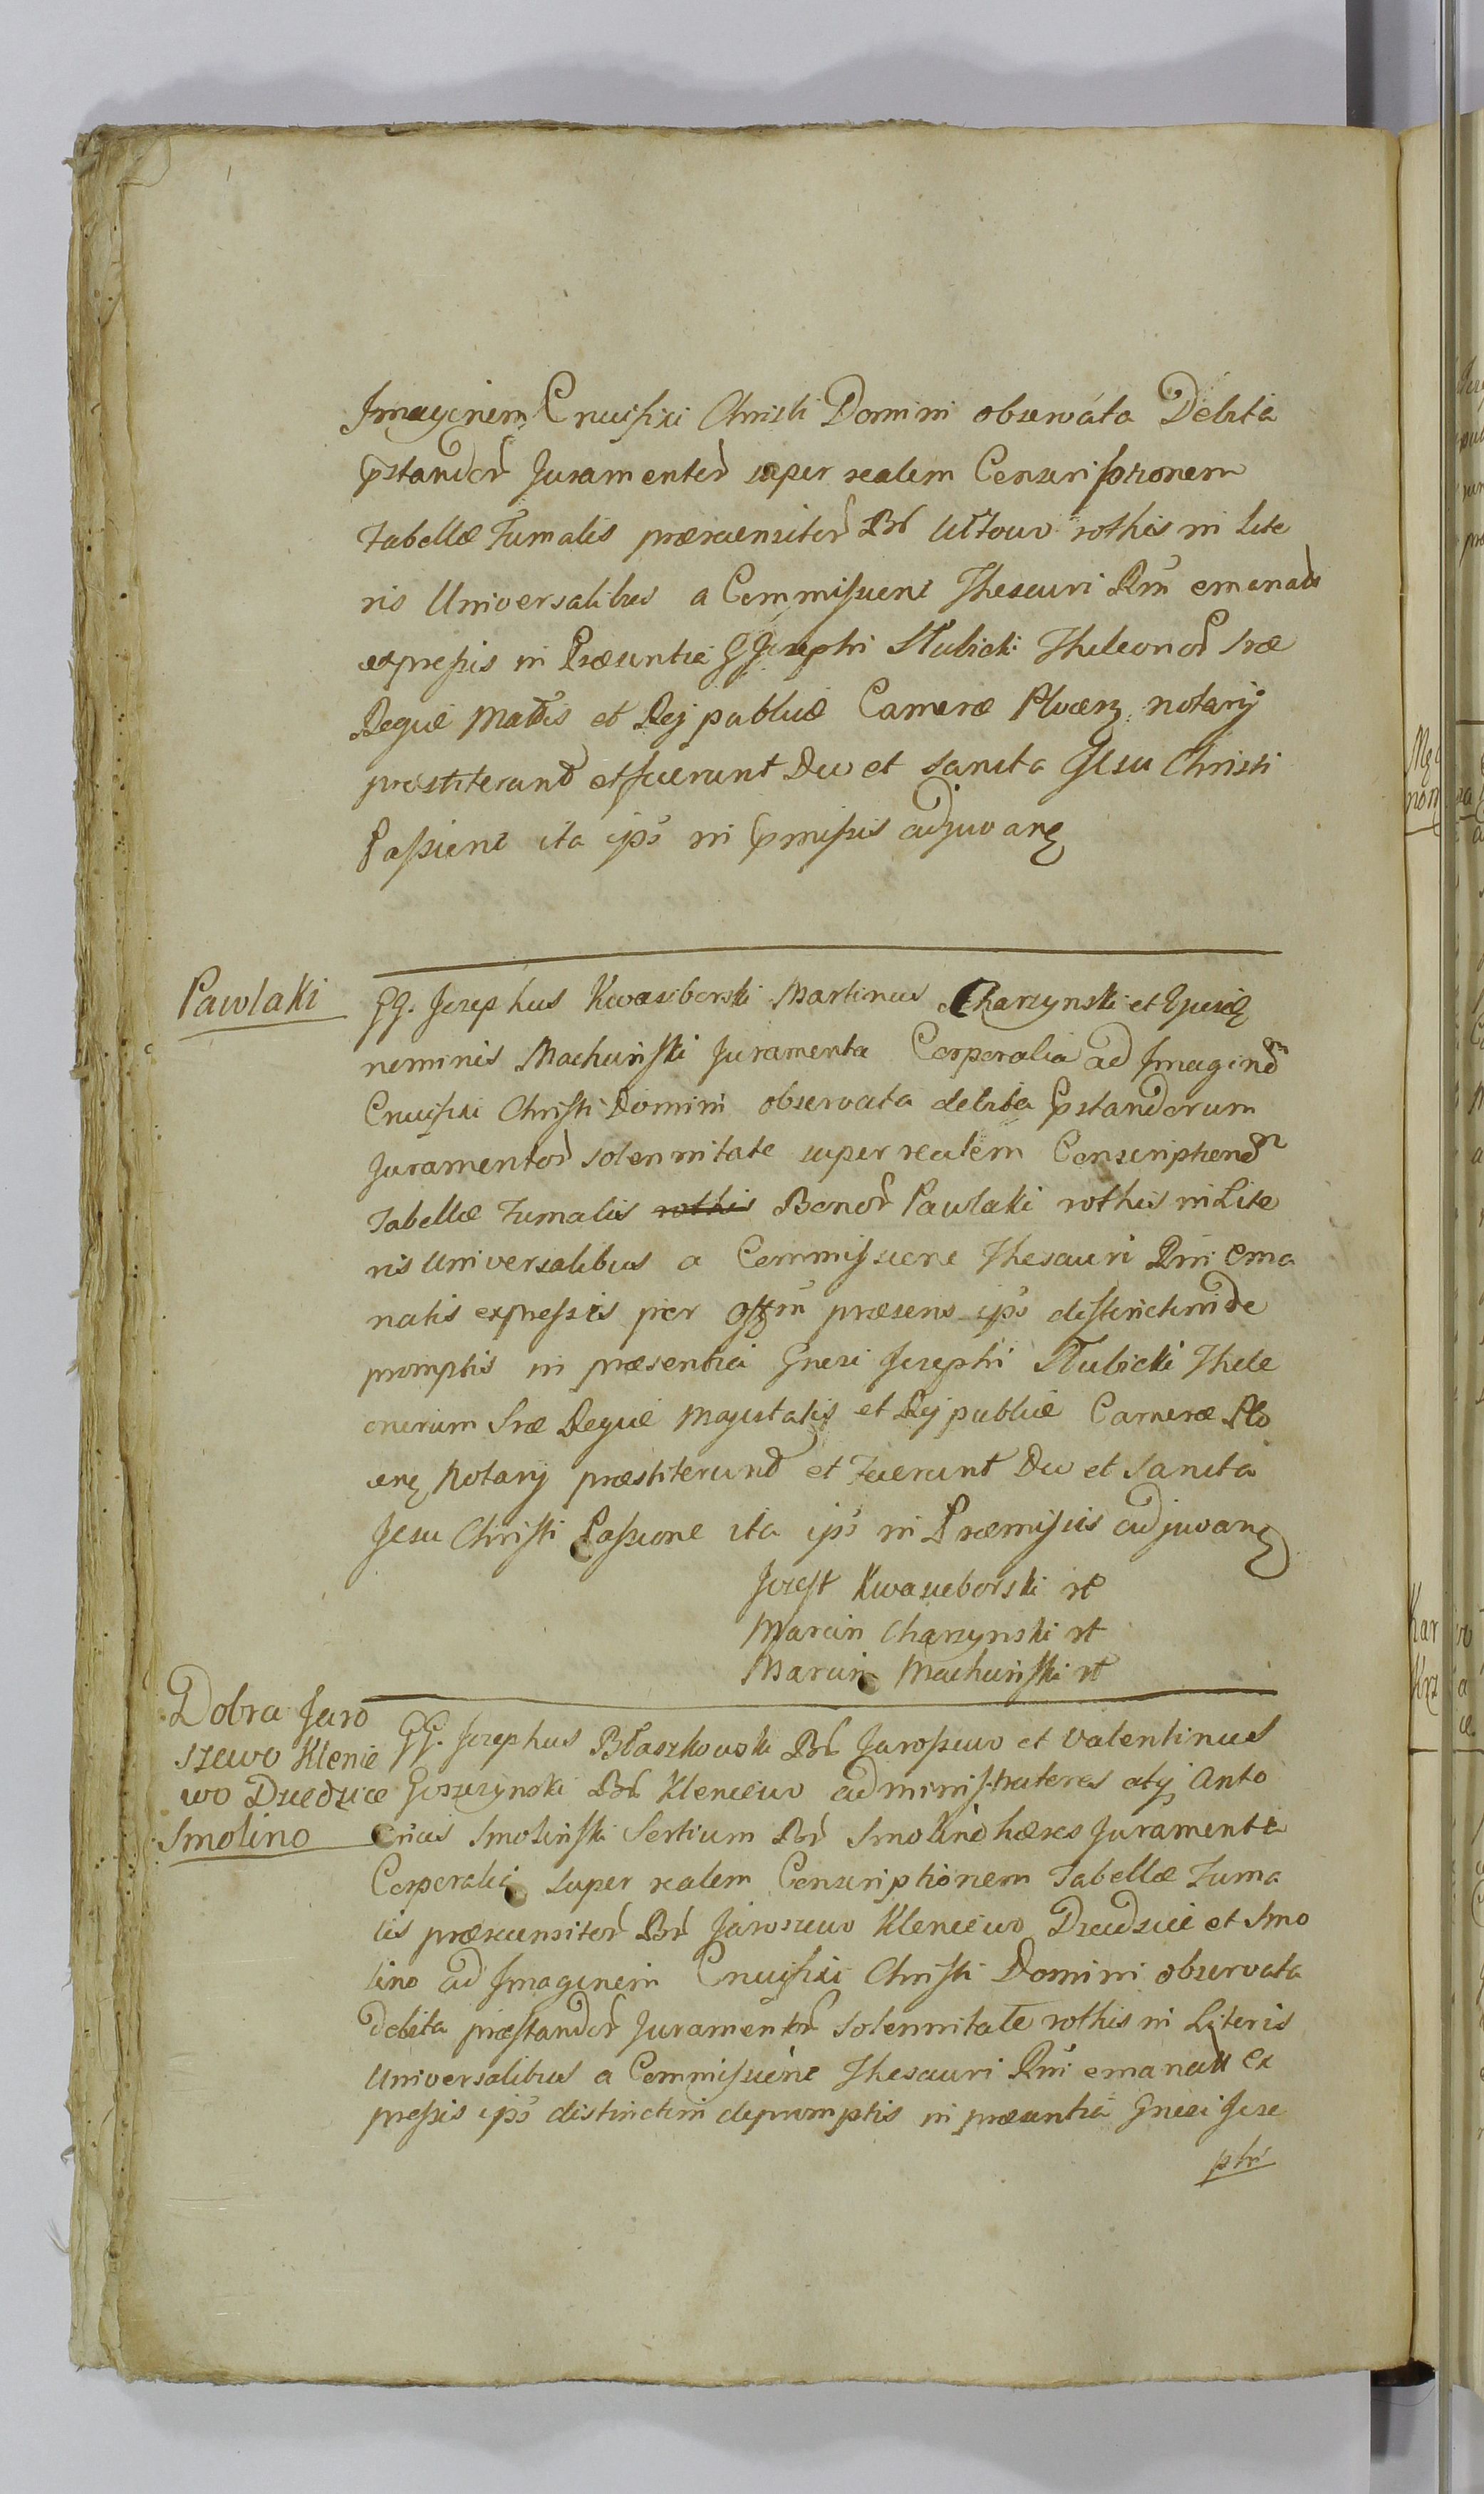 Imaginem Crucifixi Christi Domini observata Debita
pstandor Juramentor super realem Conscriptionem
Tabellæ Fumalis præcensitor Br rothis in Lite
ris Universalibus a Commissione Thesauri Rni emanatis
expressis in Præsentia G Josephi Słubicki Theleonor Sræ
Regiæ Mattis et Reipublicæ Cameræ Plocen notarij
præstiterunt etfecerunt Deo et Sancta Jesu Christi
Passione ita ips in pmissis adjuvan
Pawłaki
GG. Josephus Kwasiborski Martinus Charzynski et Ejusd
nominis Machciński Juramenta Corporalia ad Imaginem
Crucifixi Christi Domini observata debita pstandorum
Juramentor solennitate super realem Conscriptionem
Tabellæ Fumalis rothis Bonor Pawłaki rothis in Lite
ris Universalibus a Commissione Thesauri Rni ema
natis expressis per Offm præsens ips distinctim de
promptis in præsentia Gnesi Josephi Słubicki Thele
onerum Sræ Regiæ Majestatis et Reipublicæ Cameræ Plo
cen Notarij præstiterunt et Fecerunt Deo et Sancta
Jesu Christi Passione ita ips in Præmissis adjuvan
Jozeff Kwasieborski
Marcin Charzynski
Marcin Machciński
Dobra Jaro
szewo Klenie
wo Dziedzice
Smolino
GG. Josephus Błaszkowski Br Jaroszewo et Valentinus
Goszczynski Br Kleniewo administratores atq Anto
nius Smoliński Br Smolino hæres Juramenta
Corporalia super realem Conscriptionem Tabellæ Fuma
lis præcensitor Br Jaroszewo Kleniewo Dziedzice et Smo
lino ad Imaginem Crucifixi Christi Domini observata
debita præstandor Juramentor Solennitate rothis in Literis
Universalibus a Commissione Thesauri Rni emanatis ex
pressis ips distinctim depromptis in præsentia Gnesi Jose
phi